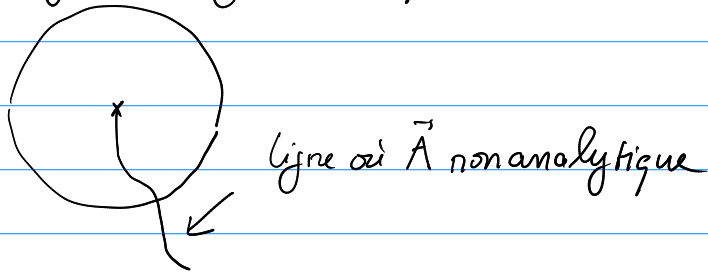 ligne où A⃗ nonanalytique